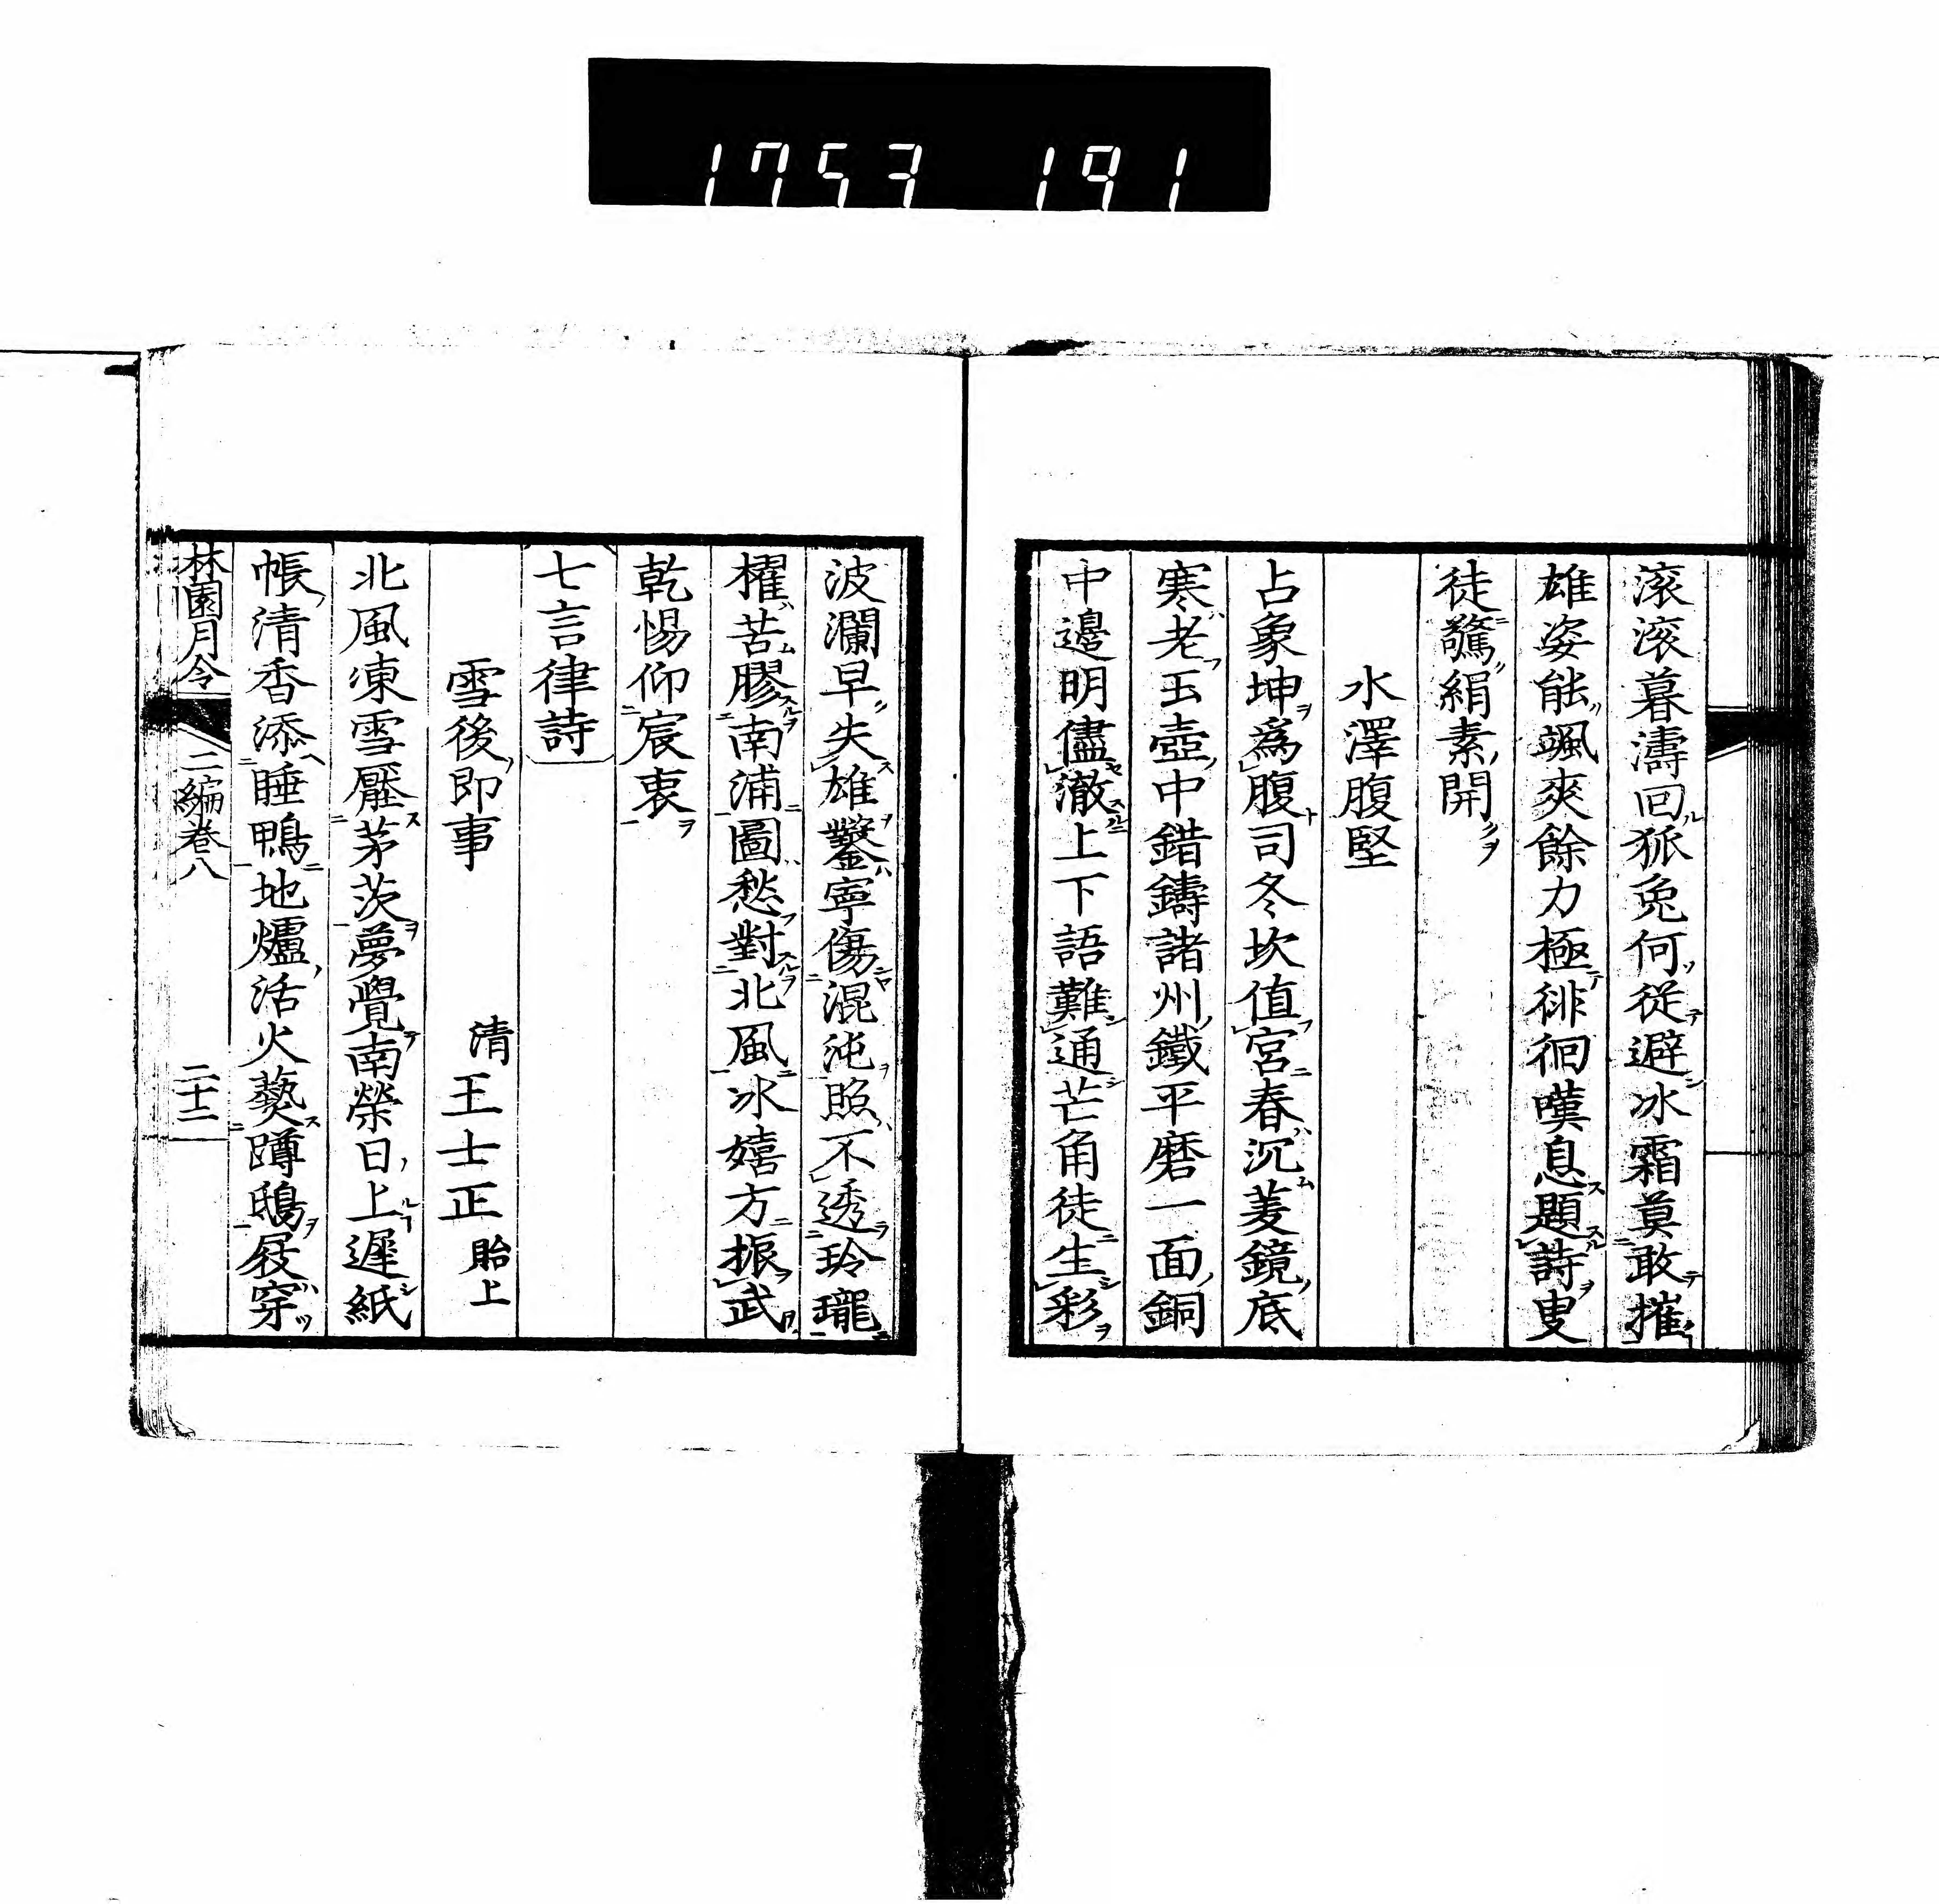 1753 191
滚滚暮濤回狐兔何從避冰霜莫敢摧
雄姿能颯爽餘力極徘徊嘆息題詩叟
徒驚絹素開
水澤腹堅
占象坤爲腹司冬坎值宮春沉菱鏡底
寒老玉壺中錯鑄諸州鐵平磨一面銅
中邊明儘澈上下語難通芒角徒生彩
波瀾早失雄鑿寧傷混沌照不透玲瓏
櫂苦膠南浦圖愁對北風冰嬉方振武
乾惕仰宸衷
七言律詩
雪後即事 清 王士正 貽上
北風凍雪壓茅茨夢覺南榮日上遲紙
帳清香添睡鴨地爐活火爇蹲鴟屐穿
林園月令 二編卷八 二十二